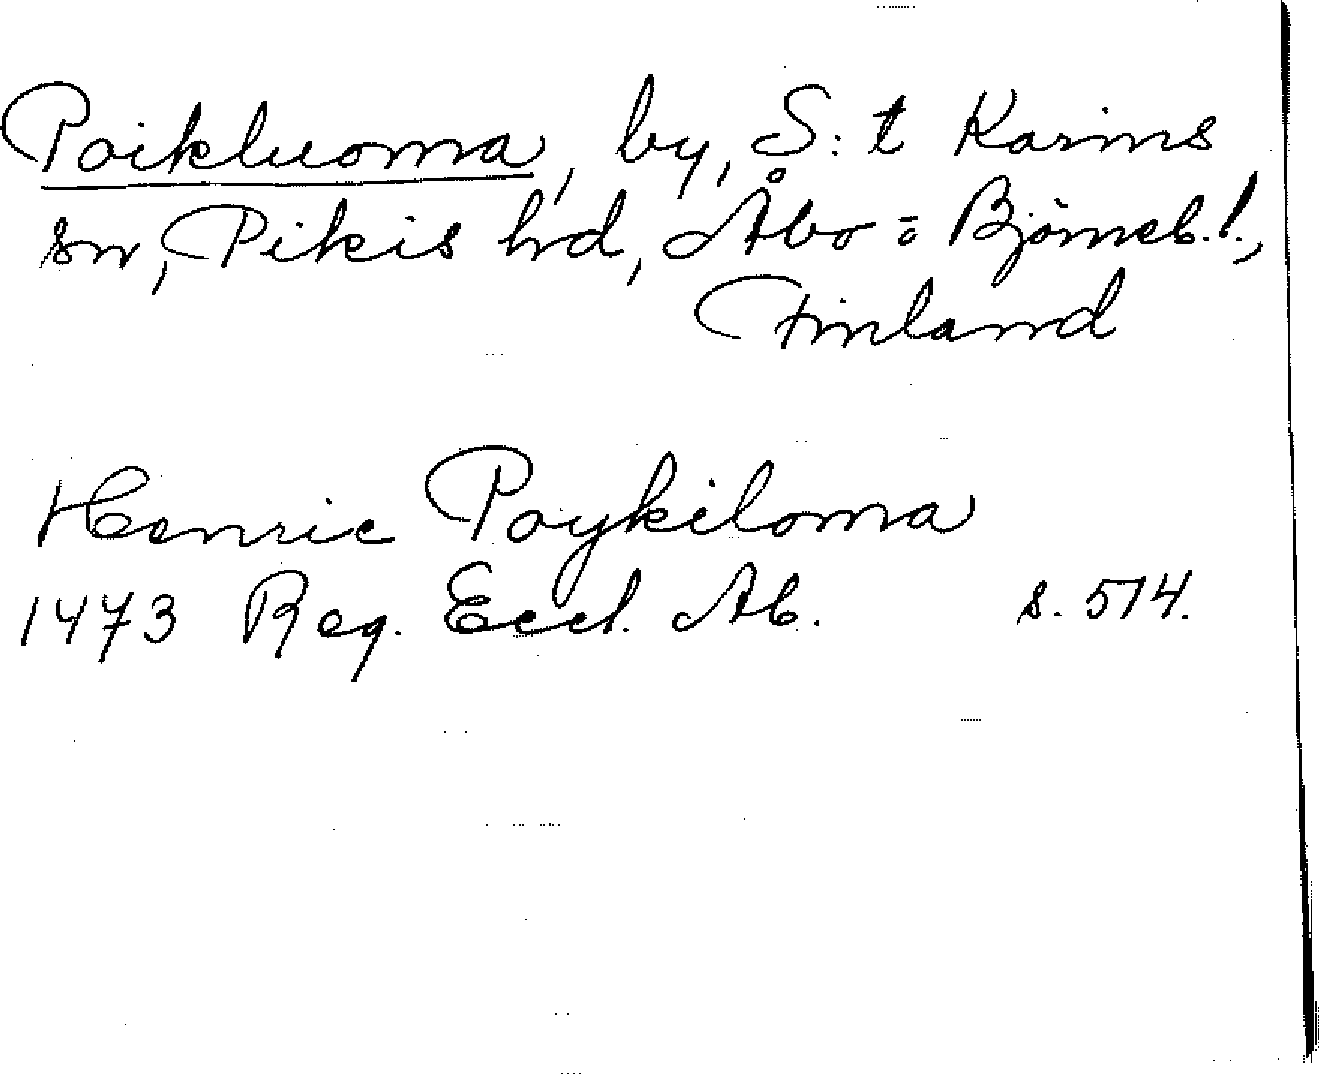 Poikluoma, by, S:t Karins
sn, Pikis hd, Åbo = Björneb. l.,
Finland
Henric Poykiloma
1473 Reg. Eccl. Ab. s. 514.